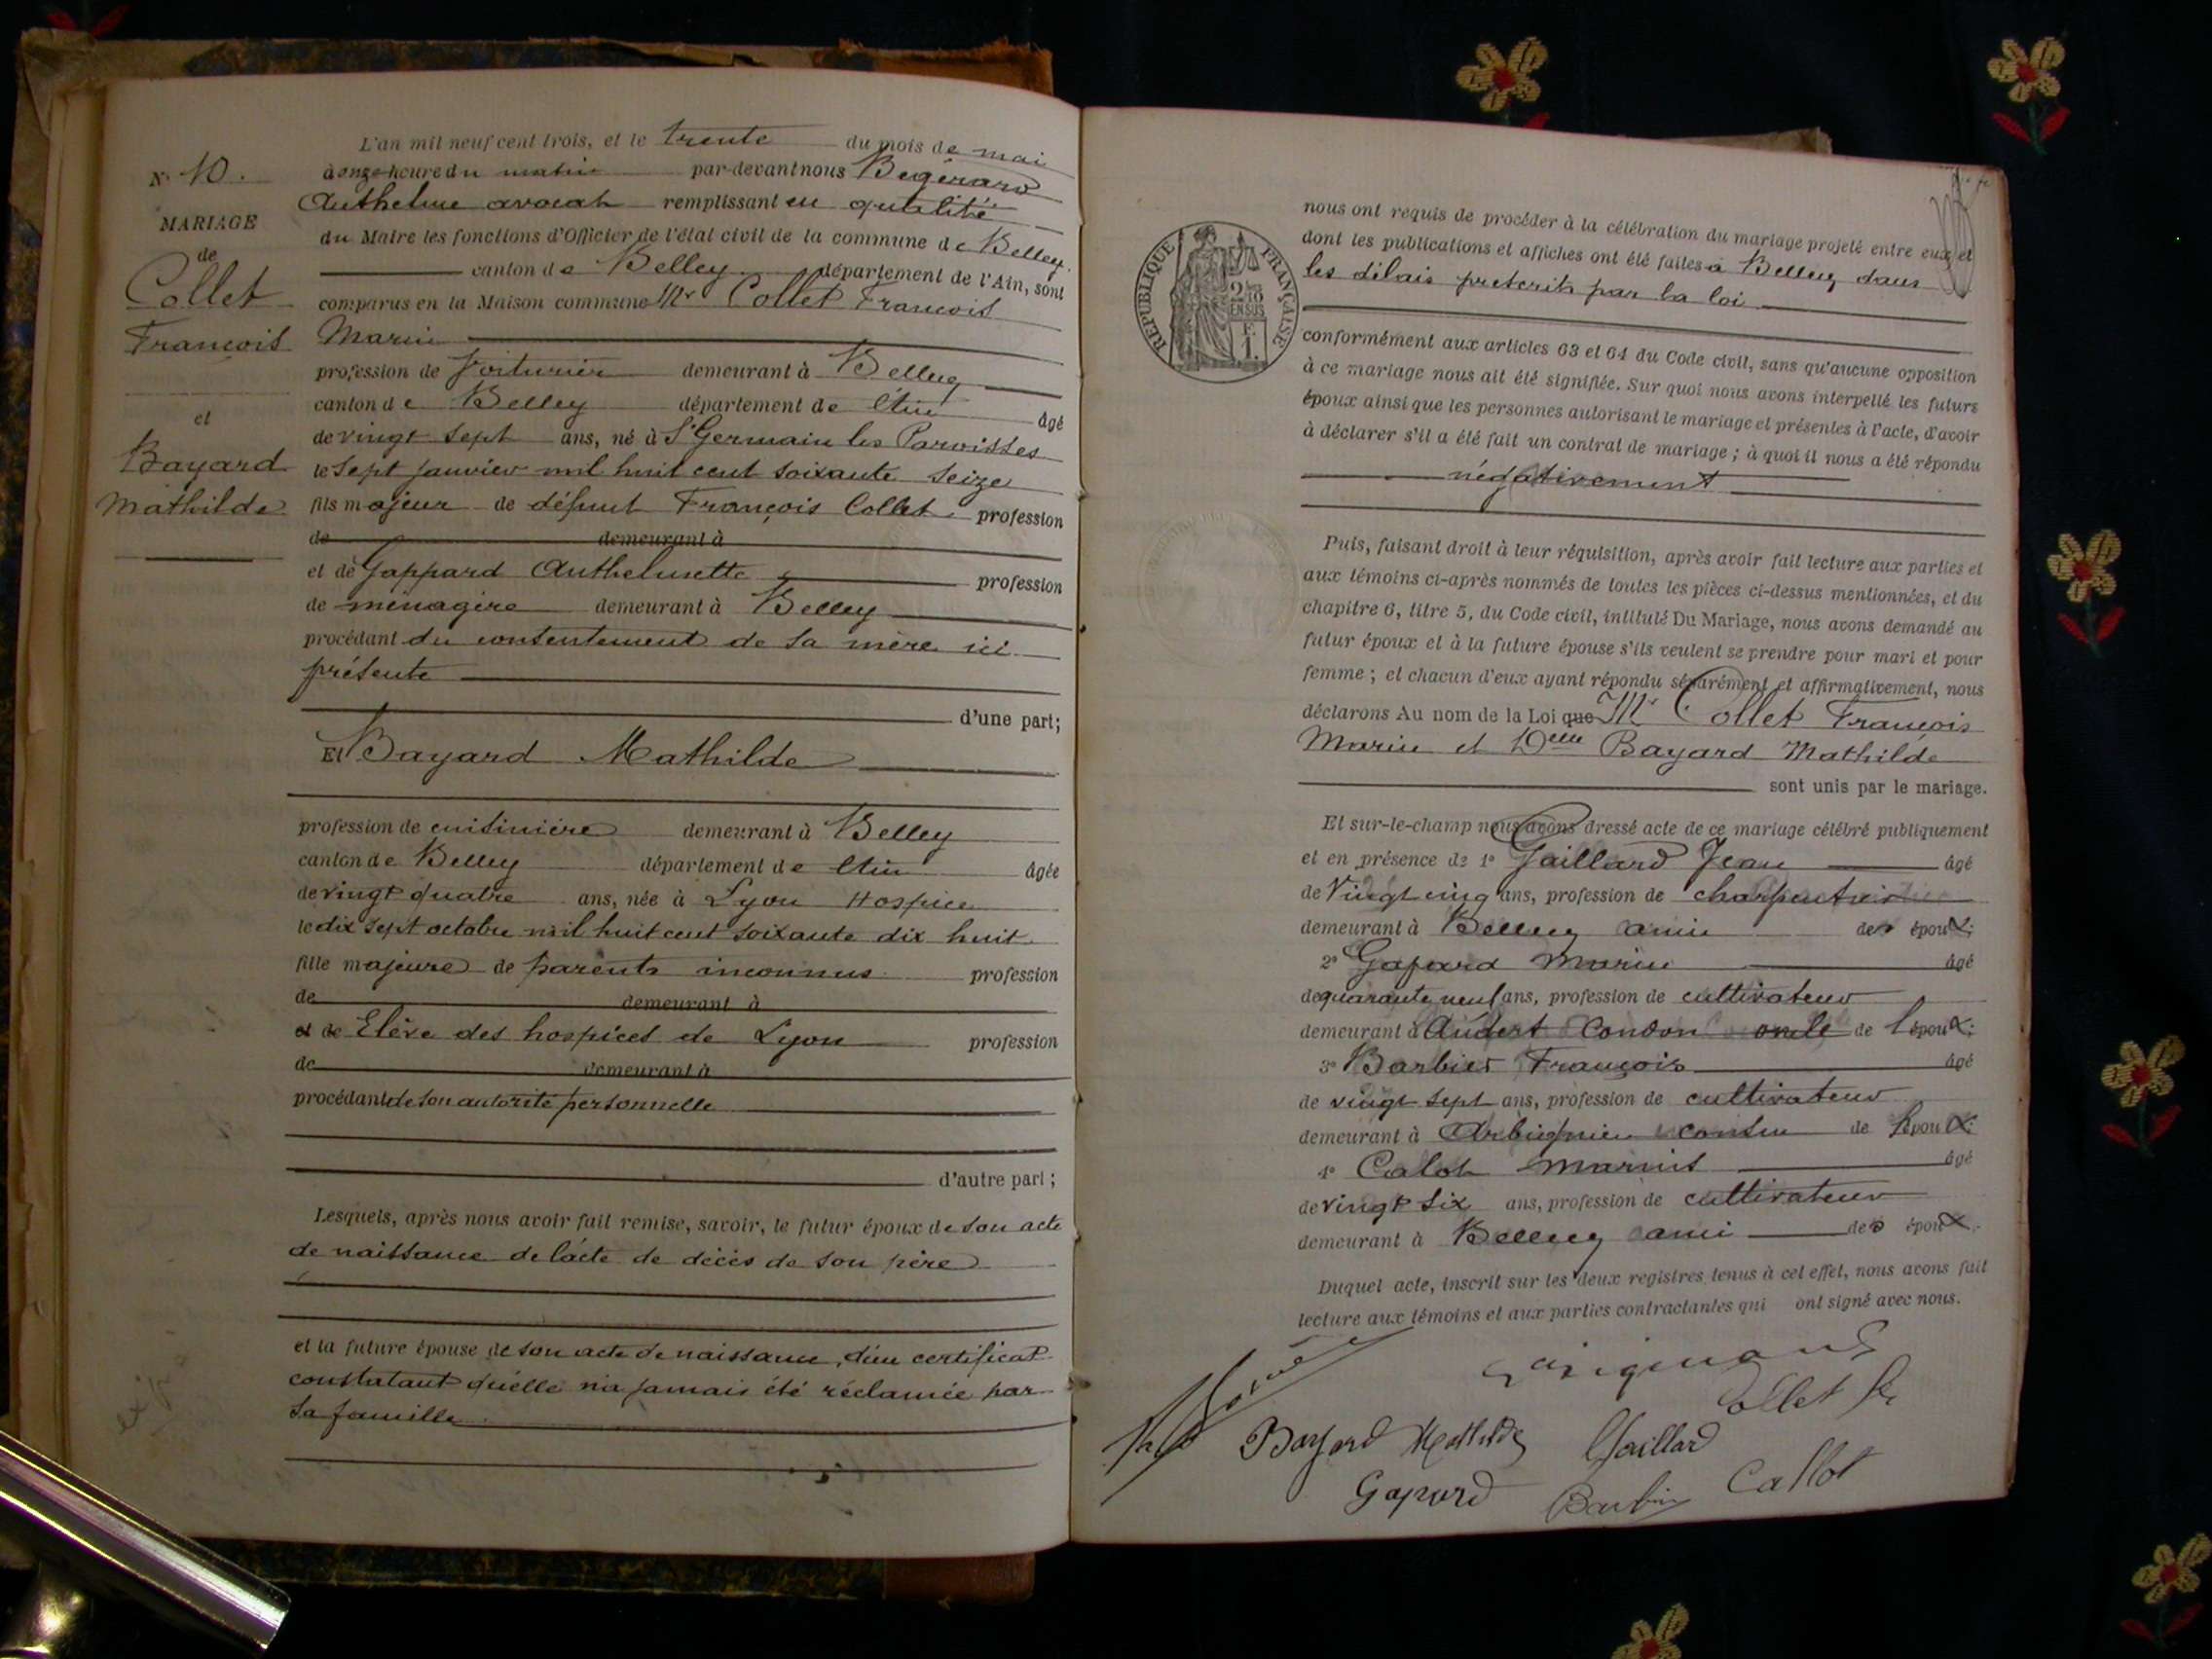 N° 10.
MARIAGE
de
Collet
François
et
Bayard
Mathilde
L'an mil neuf cent trois, et le trente du mois de mai
à onze heure du matin par-devant nous
Anthelme avocat remplissant en qualité
du Maire les fonctions d'Officier de l'état civil de la commune de Belley.
canton de Belley département de l'Ain, sont
comparus en la Maison commune Mr Collet François
Marin
profession de voiturier demeurant à Belley
canton de Belley département de l'Ain âgé
de vingt sept ans, né à St Germain les Paroisses
le sept janvier mil huit cent soixante seize
fils majeur de défunt François Collet profession
de demeurant à
et de Gappard Anthelmette profession
de ménagère demeurant à Belley
procédant du consentement de sa mère ici
présente
d'une part;
Et Bayard Mathilde
profession de cuisinière demeurant à Belley
canton de Belley département de l'Ain âgée
de vingt quatre ans, née à Lyon Hospice
le dix sept octobre mil huit cent soixante dix huit
fille majeure de parents inconnus profession
de demeurant à
et de Elève des hospices de Lyon profession
de demeurant à
procédant de son autorité personnelle
d'autre part;
Lesquels, après nous avoir fait remise, savoir, le futur époux de son acte
de naissance de l'acte de décès de son père
et la future épouse de son acte de naissance, d'un certificat
constatant qu'elle n'a jamais été réclamée par
sa famille
RÉPUBLIQUE FRANÇAISE
2/10
EN SUS
F.
1.
nous ont requis de procéder à la célébration du mariage projeté entre eux et
dont les publications et affiches ont été faites à Belley dans
les délais prescrits par la loi
conformément aux articles 63 et 64 du Code civil, sans qu'aucune opposition
à ce mariage nous ait été signifiée. Sur quoi nous avons interpellé les futurs
époux ainsi que les personnes autorisant le mariage et présentes à l'acte, d'avoir
à déclarer s'il a été fait un contrat de mariage; à quoi il nous a été répondu
négativement
Puis, faisant droit à leur réquisition, après avoir fait lecture aux parties et
aux témoins ci-après nommés de toutes les pièces ci-dessus mentionnées, et du
chapitre 6, titre 5, du Code civil, intitulé Du Mariage, nous avons demandé au
futur époux et à la future épouse s'ils veulent se prendre pour mari et pour
femme; et chacun d'eux ayant répondu séparément et affirmativement, nous
déclarons Au nom de la Loi que Mr Collet François
Marin et Delle Bayard Mathilde
sont unis par le mariage.
Et sur-le-champ nous avons dressé acte de ce mariage célébré publiquement
et en présence de 1° Gaillard Jean âgé
de Vingt cinq ans, profession de charpentier
demeurant à Belley ami des époux;
2° Gapard Marin âgé
de quarante neuf ans, profession de cultivateur
demeurant à Andert Condon oncle de l'époux;
3° Barbier François âgé
de vingt sept ans, profession de cultivateur
demeurant à Arbignieu cousin de l'époux;
4° Calot Marius âgé
de vingt six ans, profession de cultivateur
demeurant à Belley ami des époux.
Duquel acte, inscrit sur les deux registres tenus à cet effet, nous avons fait
lecture aux témoins et aux parties contractantes qui ont signé avec nous.
Collet fr
Bayard Mathilde Gaillard
Gapard Barbier Callot